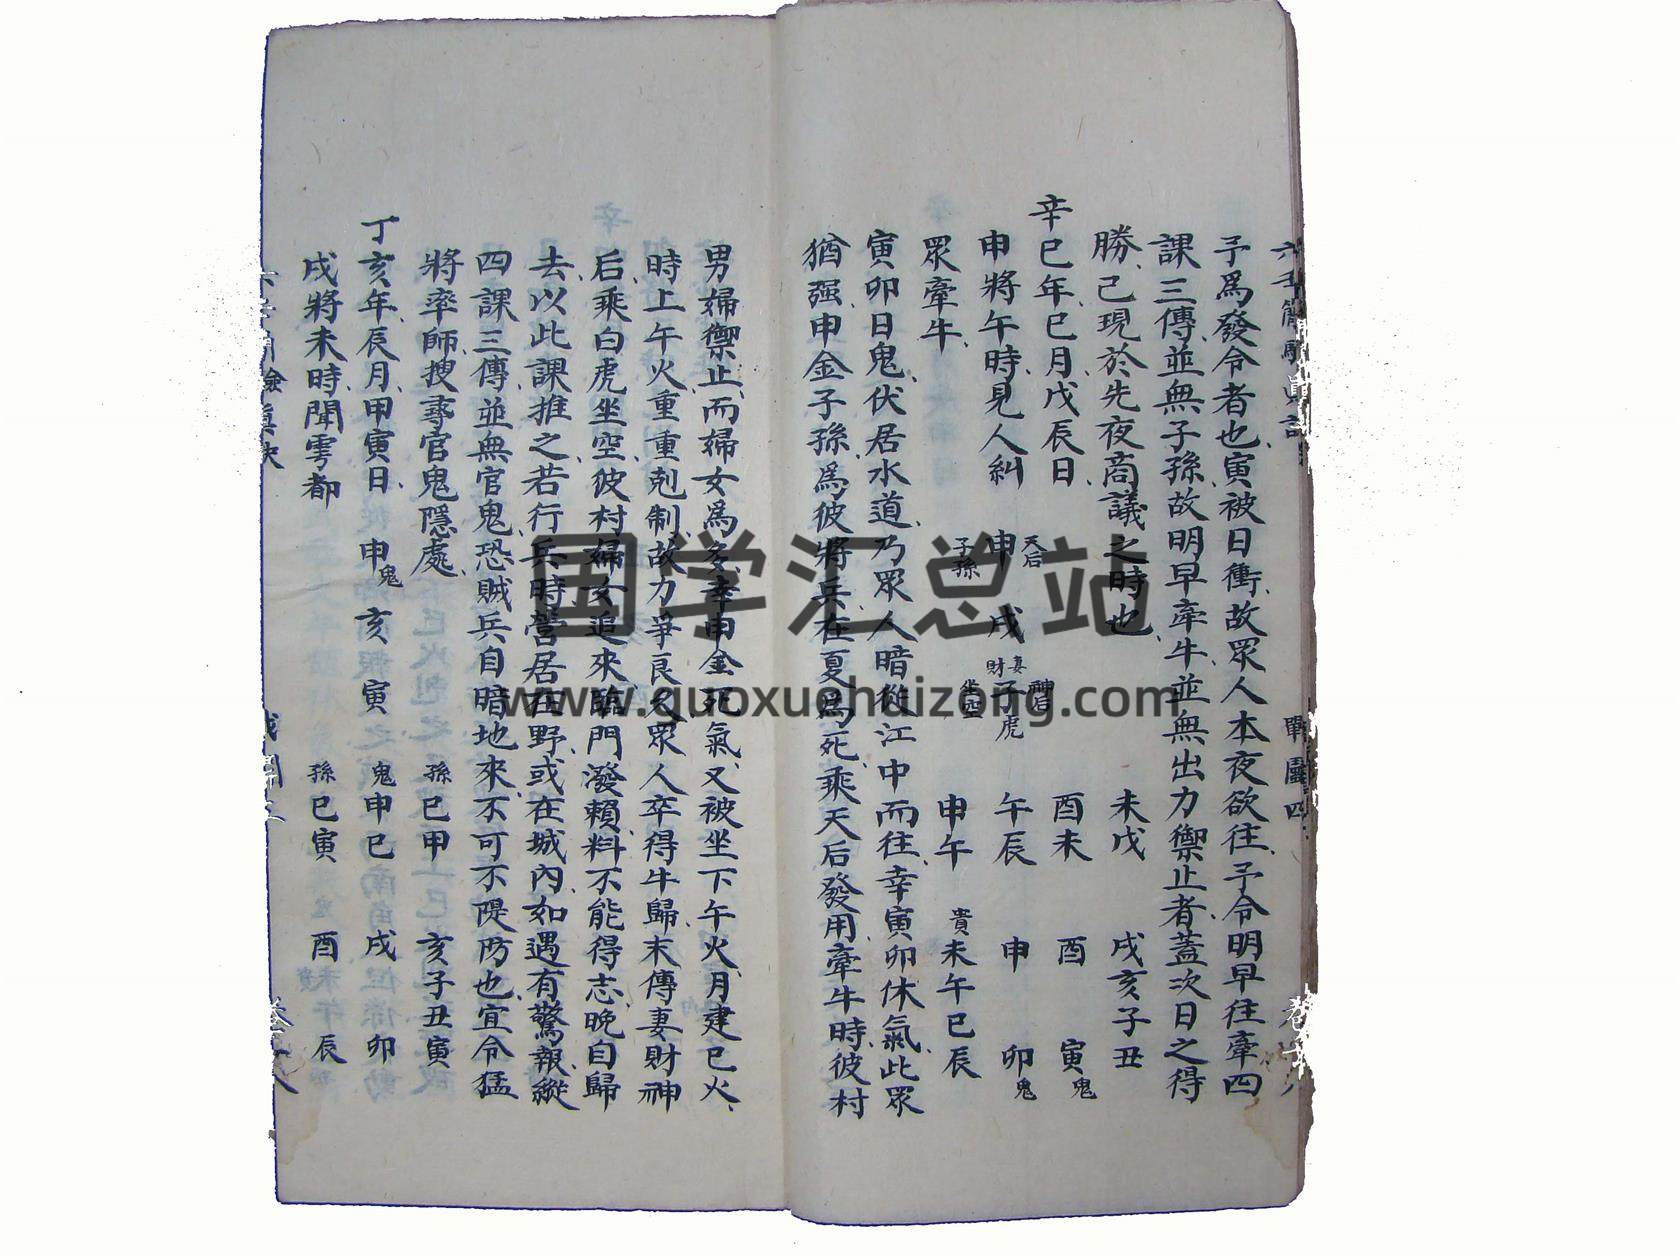 子爲發令者也寅被日衝故眾人本夜欲往子令明早往牽四
課三傳並無子孫故明早牽牛並無出力禦止者蓋次日之得
勝已現於先夜商議之時也 未戌 戌亥子丑
辛巳年巳月戊辰日 天后 神后 酉未 酉 寅鬼
申將午時見人糾 申 戌 妻財子虎 午辰 申 卯鬼
眾牽牛 子孫 坐空 申午 貴未午巳辰
寅卯日鬼伏居水道乃眾人暗從江中而往幸寅卯休氣此眾
猶强申金子孫爲彼將兵在夏爲死乘天后發用牽牛時彼村
男婦禦止而婦女爲多幸申金死氣又被坐下午火月建巳火
時上午火重重剋制故力爭良久眾人卒得牛歸末傳妻財神
后乘白虎坐空彼村婦女追來臨門潑賴料不能得志晚自歸
去以此課推之若行兵時營居在野或在城內如遇有驚報縱
四課三傳並無官鬼恐賊兵自暗地來不可不隄防也宜令猛
將率師搜尋官鬼隱處 孫巳甲 亥子丑寅
丁亥年辰月甲寅日 申鬼 亥 寅 鬼申巳 戌 卯
戌將未時聞雩都 孫巳寅 酉 辰
国学汇总站
www.guoxuehuizong.com